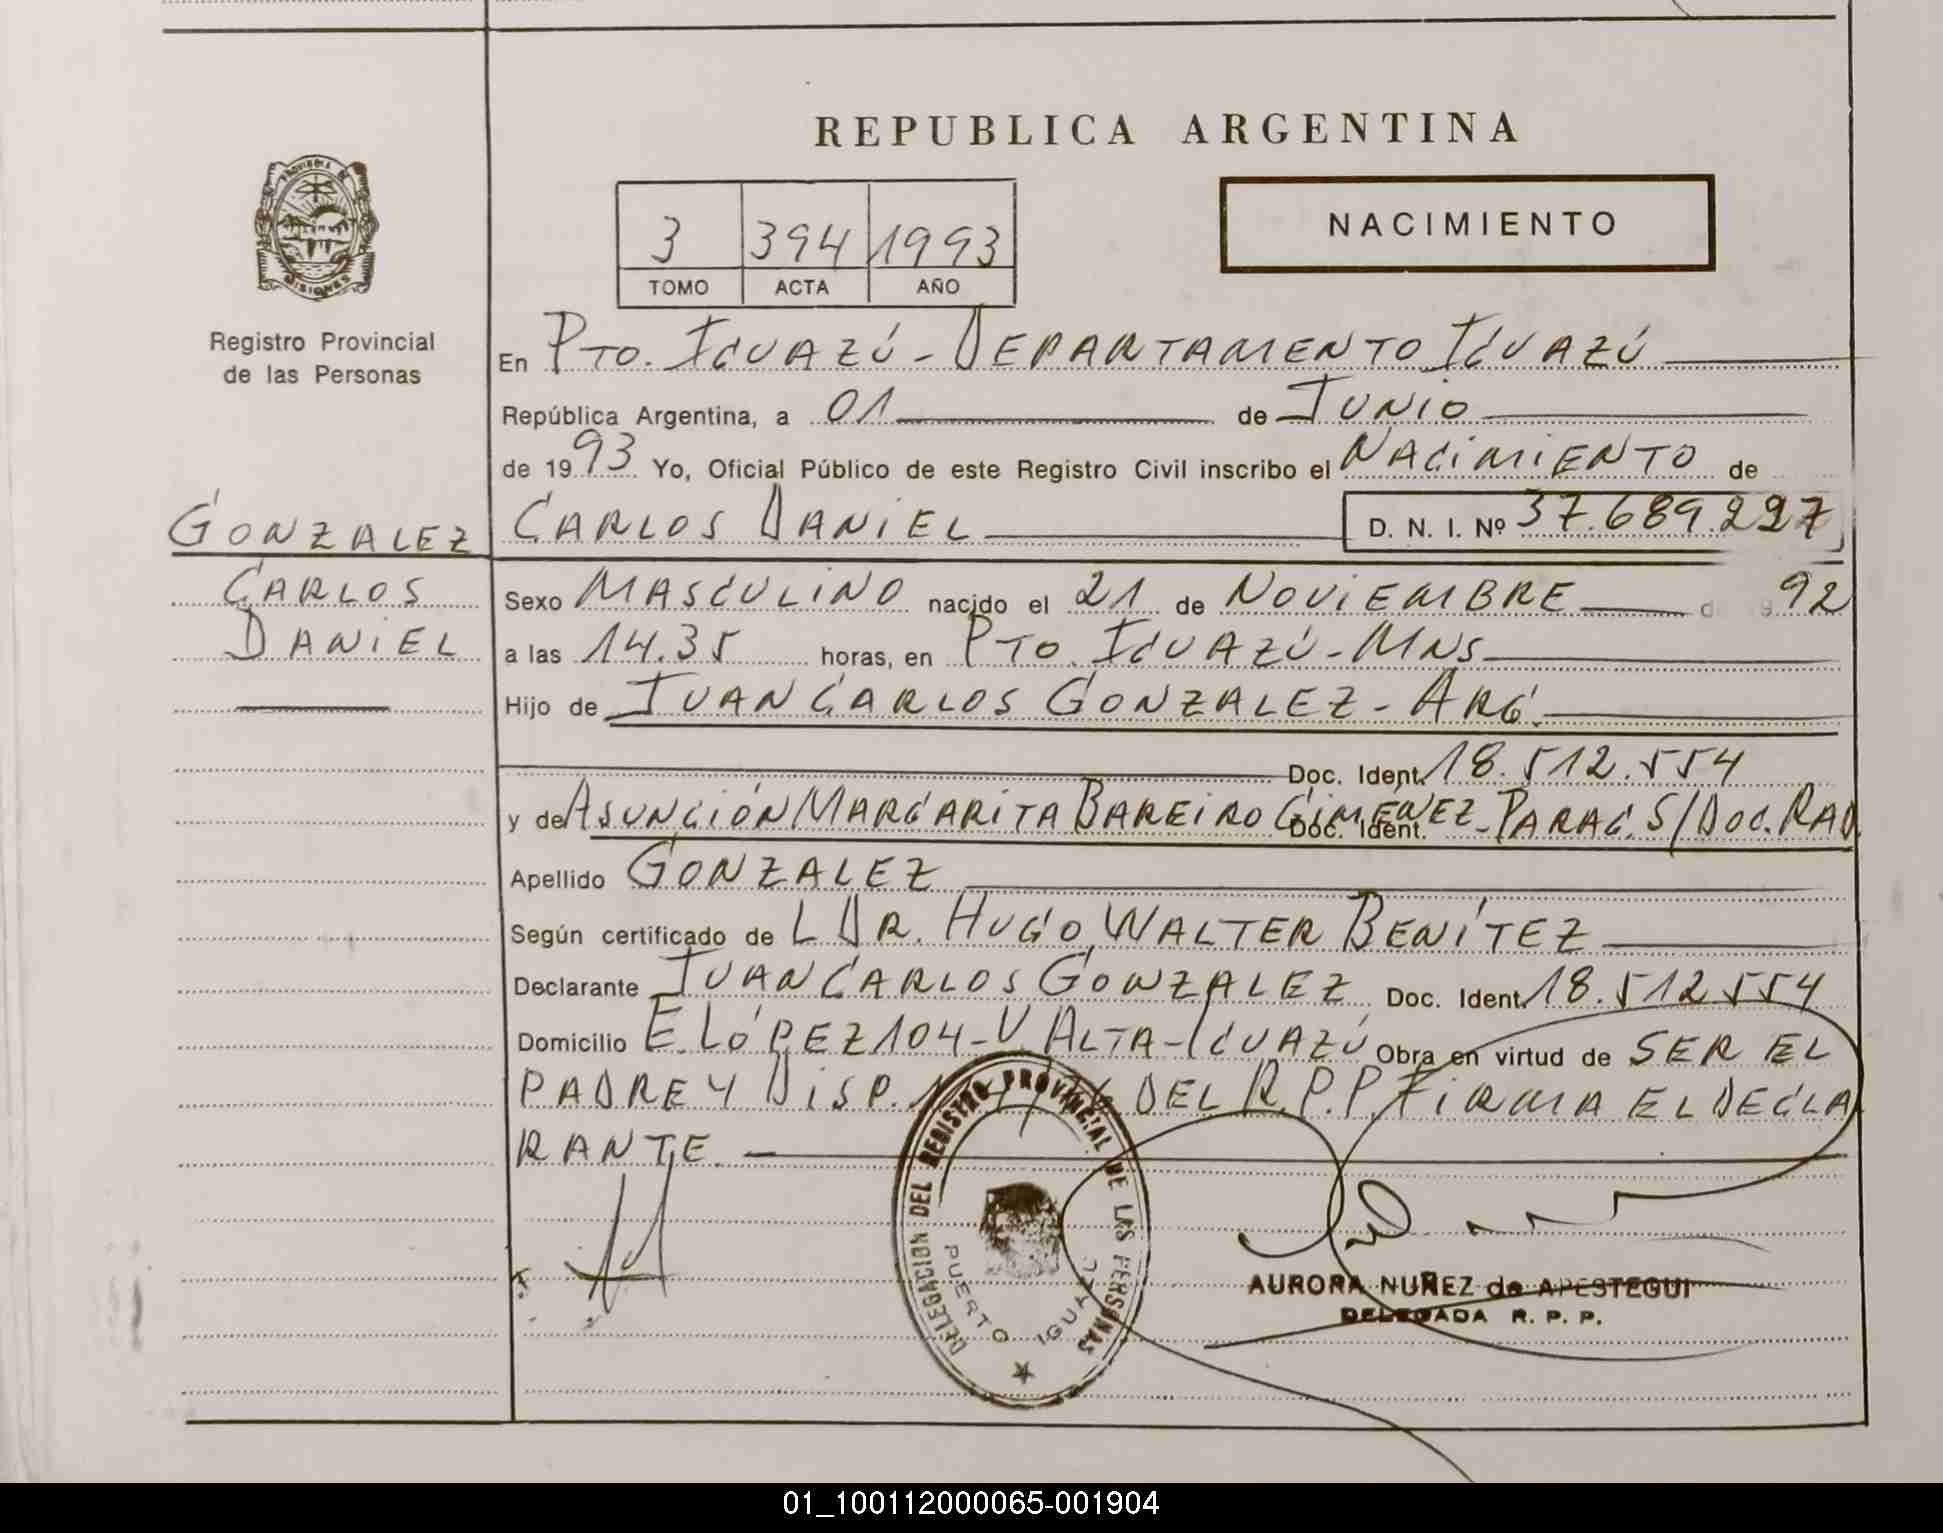 REPUBLICA ARGENTINA
PROVINCIA DE
MISIONES
Registro Provincial
de las Personas
NACIMIENTO
3 394 1993
TOMO ACTA AÑO
En PTO. IGUAZÚ - DEPARTAMENTO IGUAZÚ
República Argentina, a 01 de JUNIO
de 1993 Yo, Oficial Público de este Registro Civil inscribo el NACIMIENTO de
GONZALEZ CARLOS DANIEL D. N. I. Nº 37.689.227
CARLOS Sexo MASCULINO nacido el 21 de NOVIEMBRE de 1992
DANIEL a las 14.35 horas, en PTO. IGUAZÚ - MNS
Hijo de JUAN CARLOS GONZALEZ - ARG.
Doc. Ident. 18.512.554
y de ASUNCIÓN MARGARITA BAREIRO GIMENEZ - PARAG. S/DOC. RAD
Doc. Ident.
Apellido GONZALEZ
Según certificado de L DR. HUGO WALTER BENÍTEZ
Declarante JUAN CARLOS GONZALEZ Doc. Ident. 18.512.554
Domicilio E. LÓPEZ 104 - V. ALTA - IGUAZÚ Obra en virtud de SER EL
PADRE Y DISP. DEL R.P.P. FIRMA EL DECLA
RANTE
DELEGACION DEL REGISTRO PROVINCIAL DE LAS PERSONAS
PUERTO IGUAZU
AURORA NUÑEZ de APESTEGUI
DELEGADA R. P. P.
01_100112000065-001904